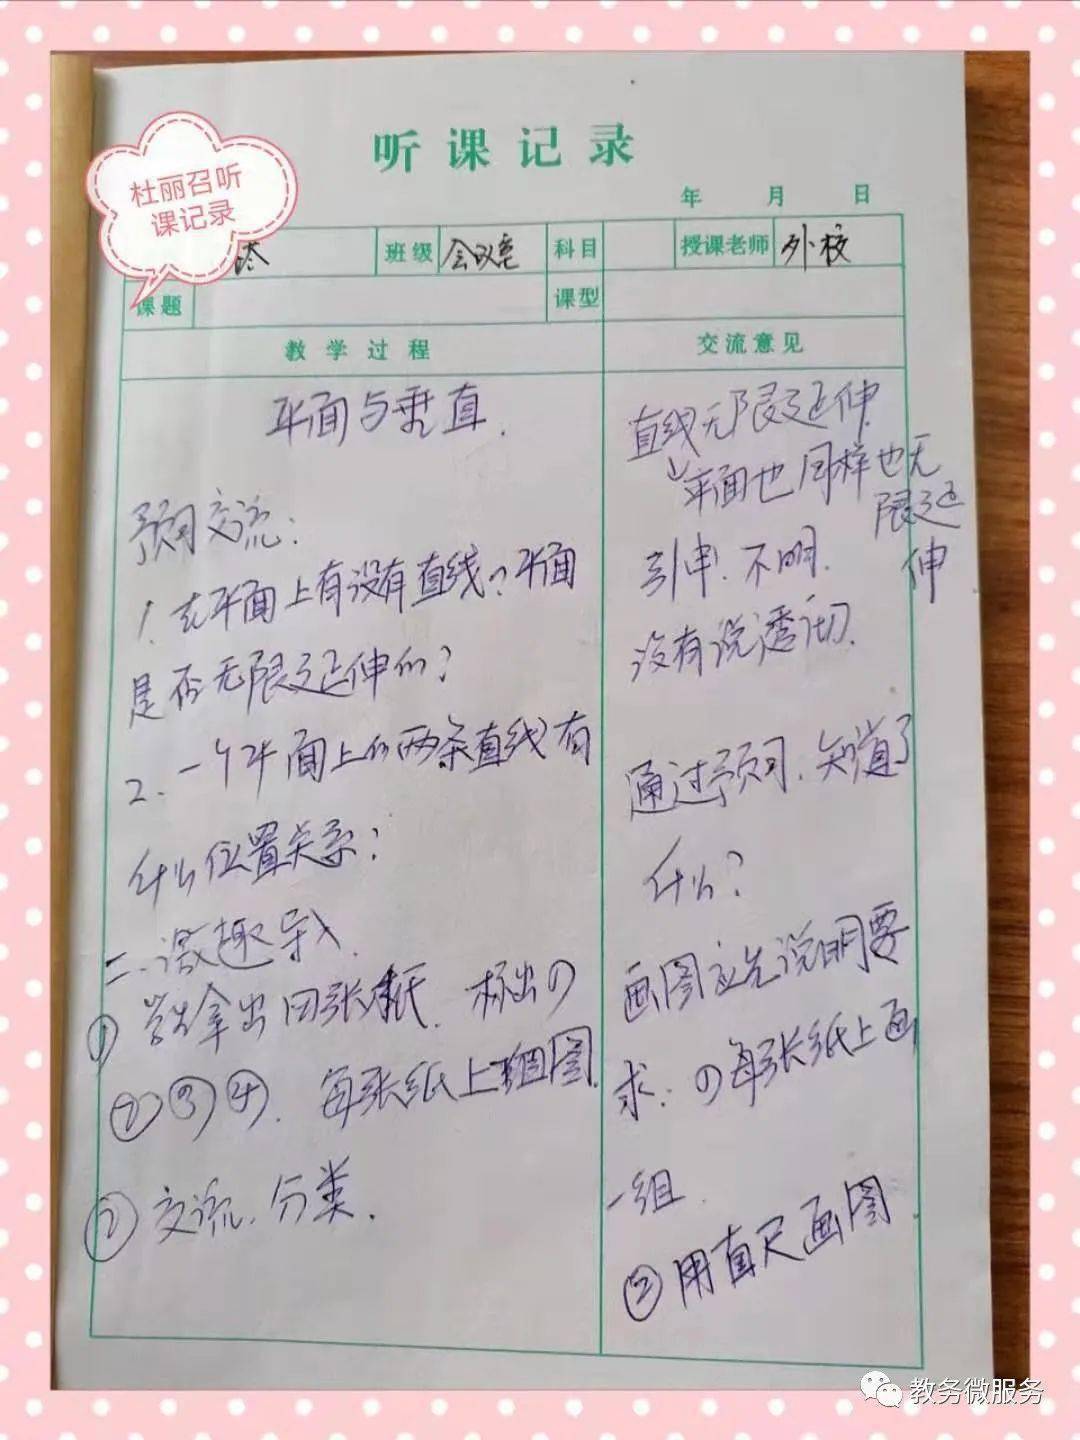 听课记录
杜丽召听
课记录
年 月 日
班级 会议室 科目 授课老师 外校
课题 课型
教学过程
平面与垂直.
预习交流:
1. 在平面上有没有直线?平面
是否无限延伸的?
2. 一个平面上的两条直线有
什么位置关系?
二.激趣导入.
① 学生拿出四张纸. 标出①
②③④. 每张纸上画图.
② 交流.分类.
交流意见
直线无限延伸.
平面也同样也无
限延
伸
引申.不明.
没有说透彻.
通过预习.知道了
什么?
画图应先说明要
求: ①每张纸上画
一组.
②用直尺画图
教务微服务